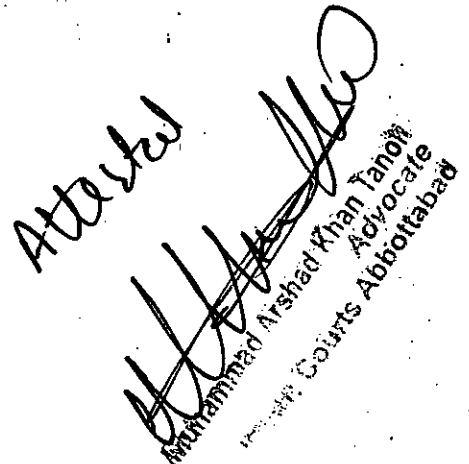 Attested
Muhammad Arshad Khan Tanoli
Advocate
Courts Abbottabad